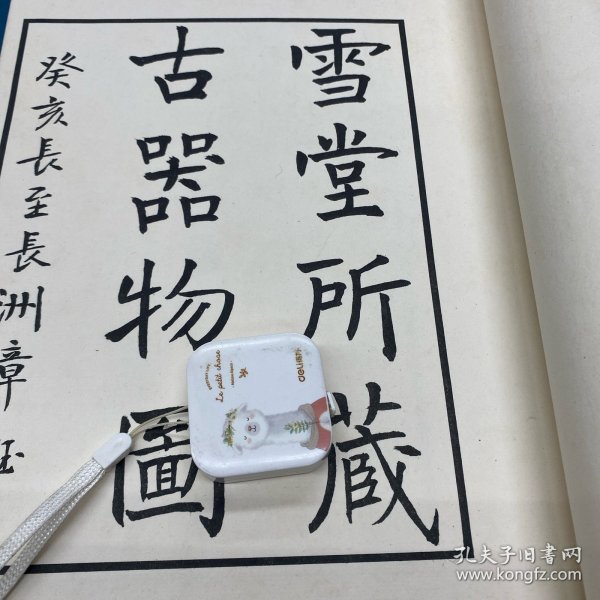 雪堂所藏
古器物圖
癸亥長至長洲章鈺
deli得力
Le petit chose
孔夫子旧書网
www.kongfz.com